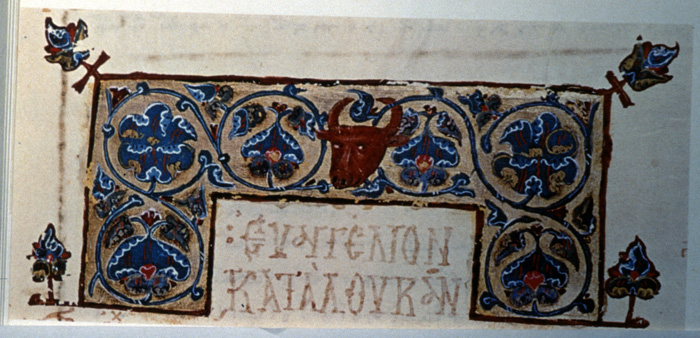 : ΕΥΑΓΓΕΛΙΟΝ
ΚΑΤΑ ΛΟΥΚΑΝ